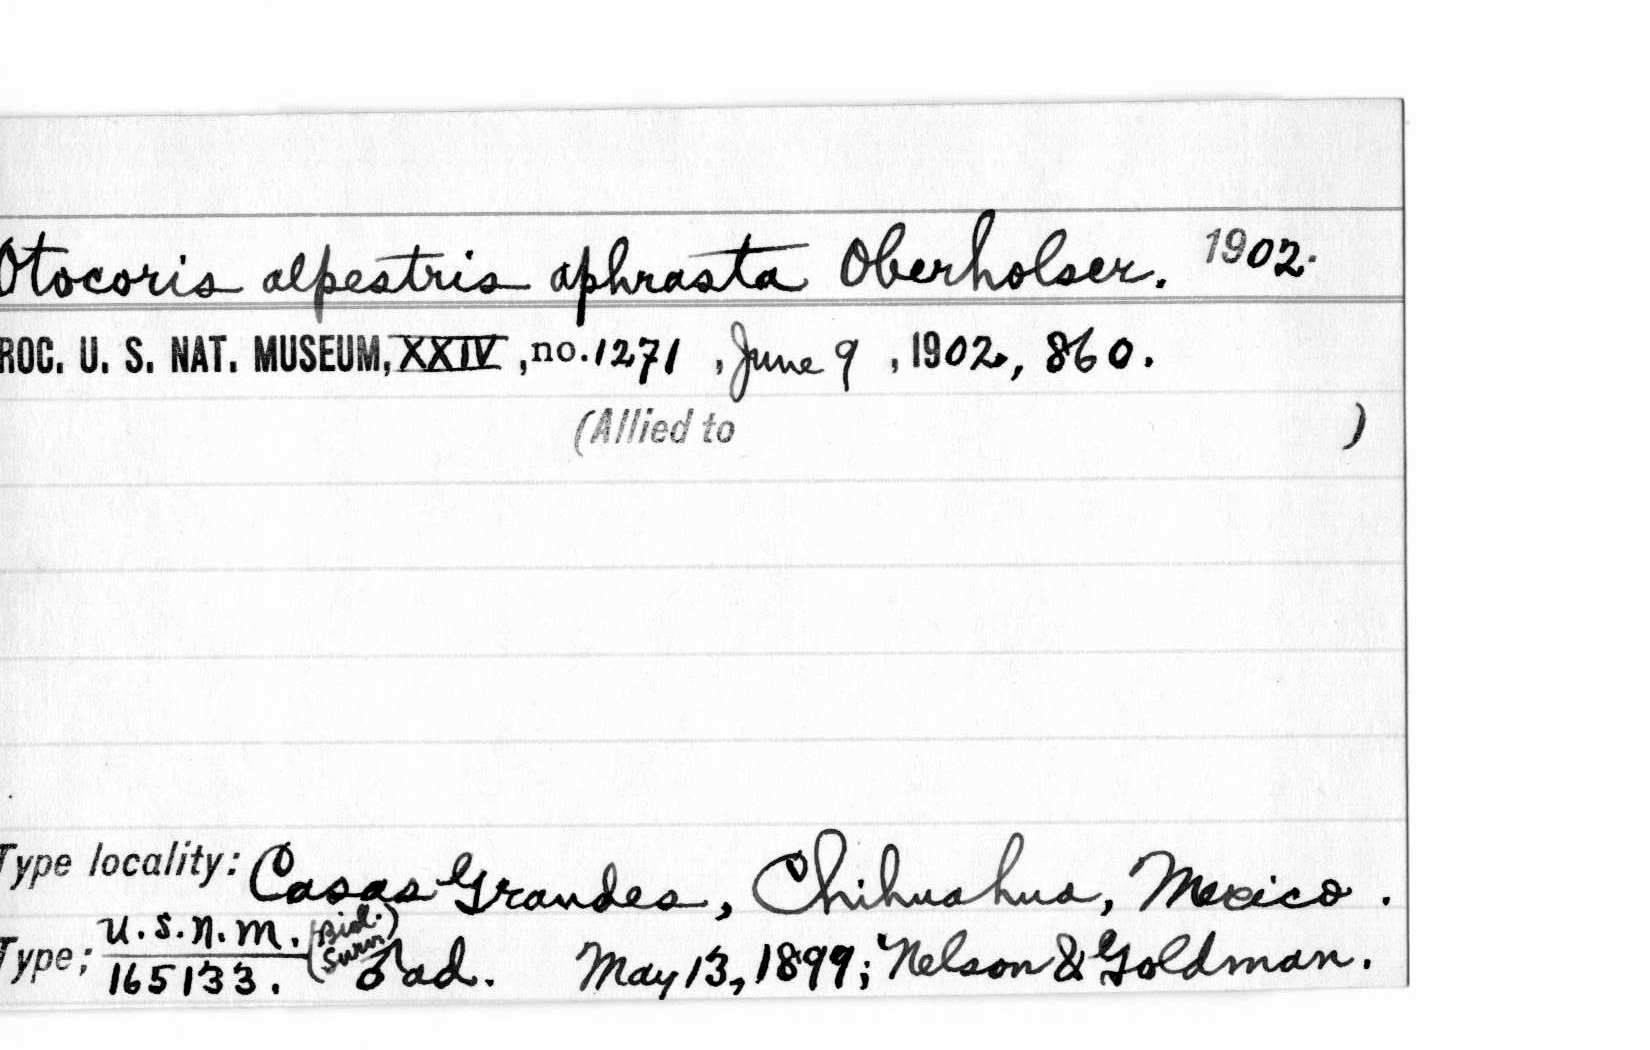 Otocoris alpestris aphrasta Oberholser. 1902.
ROC. U. S. NAT. MUSEUM, XXIV, no. 1271, June 9, 1902, 860.
(Allied to )
Type locality: Casas Grandes, Chihuahua, Mexico.
Type; U.S.N.M. 165133. (Biol. Surv.) ♂ ad. May 13, 1899; Nelson & Goldman.